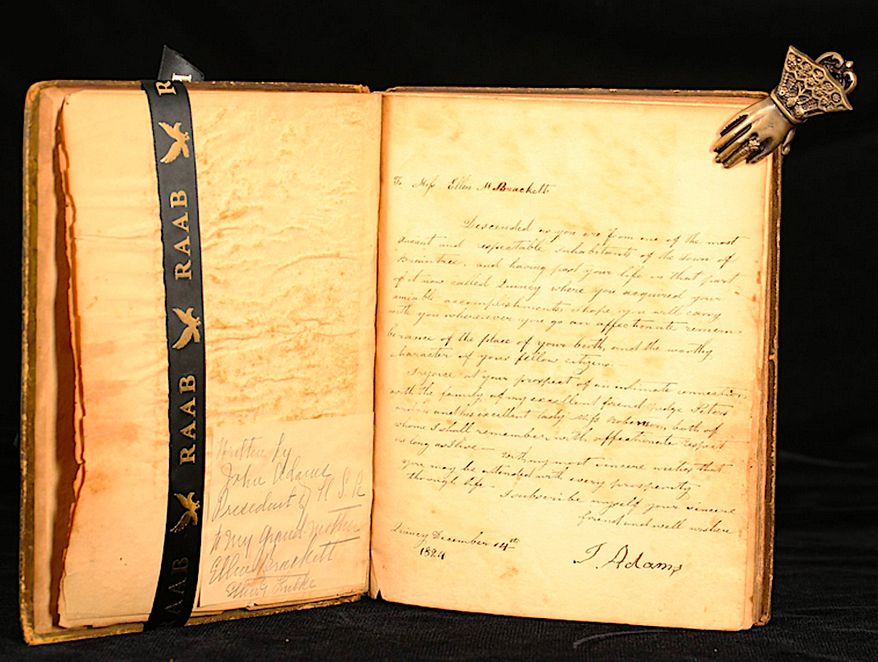 R
RAAB
RAAB
RAAB
Written by
John Adams
President of U S A
to my Grandmother
Ellen Brackett
To Miss Ellen M Brackett
Descended as you are from one of the most
ancient and respectable inhabitants of the town of
Braintree, and having past your life in that part
of it now called Quincy where you acquired your
amiable accomplishments, I hope you will carry
with you wherever you go an affectionate remem-
berance of the place of your birth, and the worthy
character of your fellow citizens.
I rejoice at your prospect of an intimate connection
with the family of my excellent friend Judge
and his excellent Lady Miss Robeson, both of
whom I shall remember with affectionate respect
as long as I live — With my most sincere wishes that
you may be attended with every prosperity
through life — I subscribe myself your sincere
friend and well wisher
Quincy December 14th
1824
J. Adams